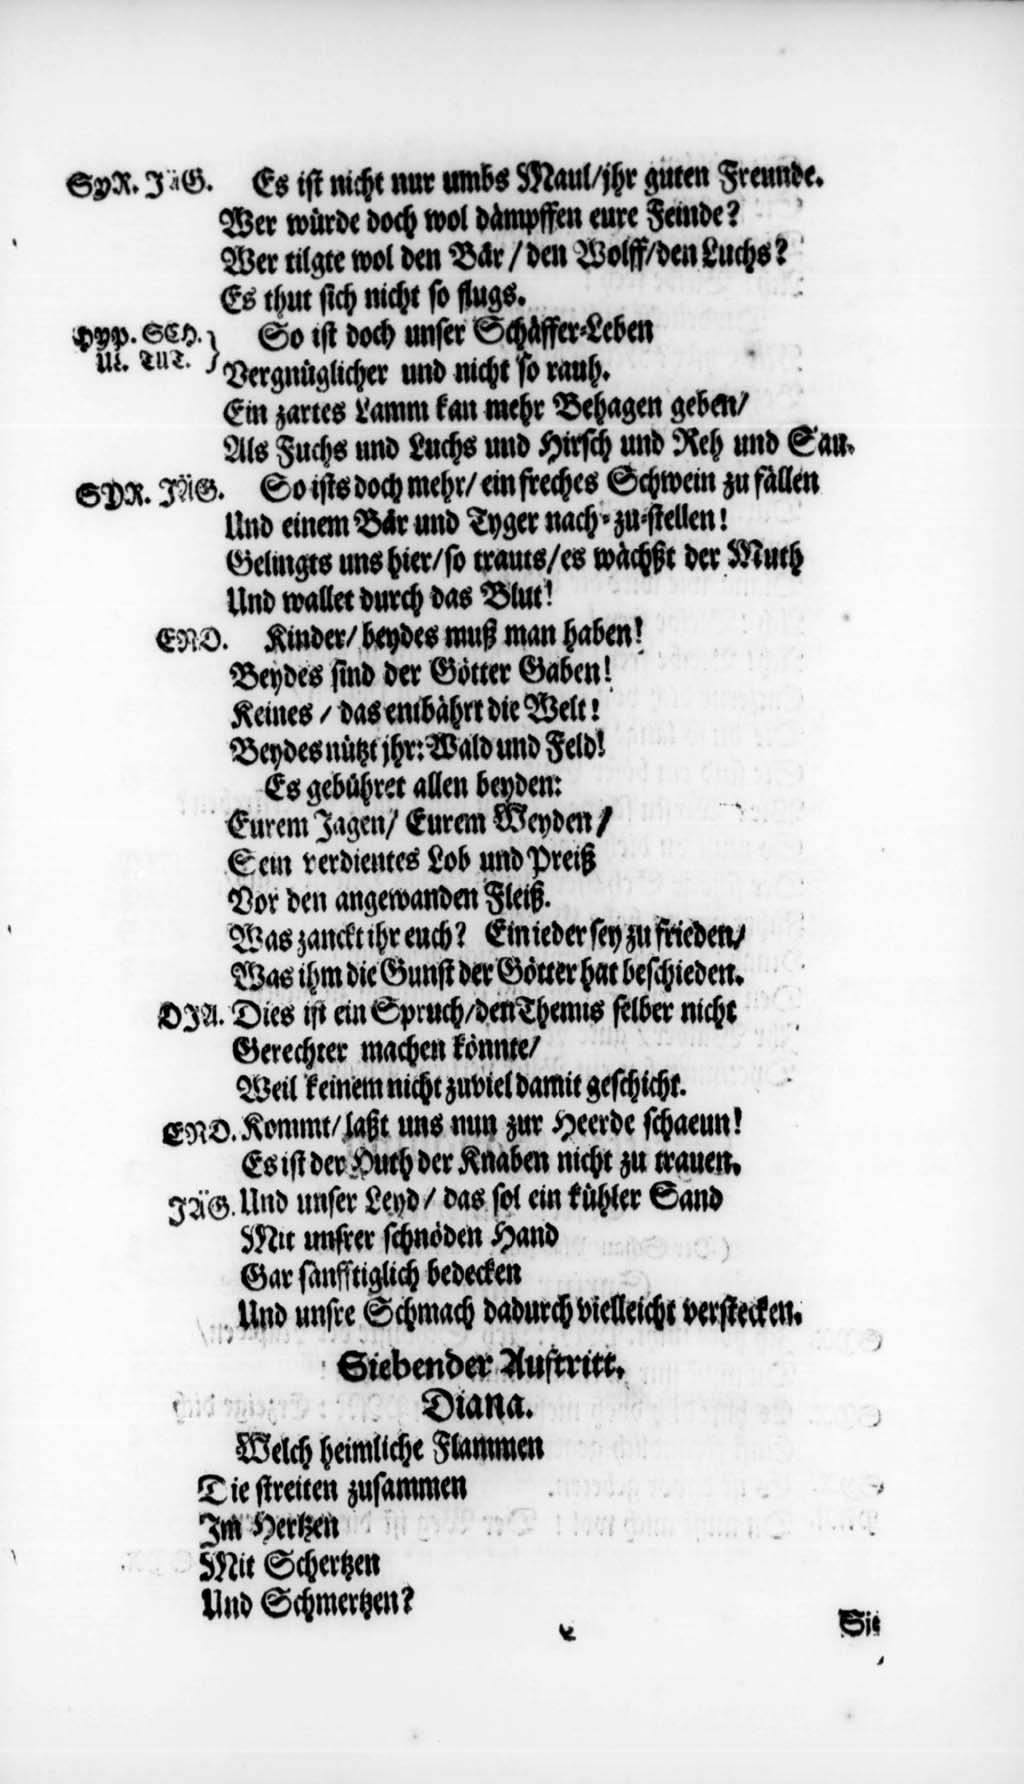 SYR. JäG. Es ist nicht nur umbs Maul/jhr guten Freunde.
Wer würde doch wol dämpffen eure Feinde?
Wer tilgte wol den Bär/den Wolff/den Luchs?
Es thut sich nicht so flugs.
HYP. SCH. So ist doch unser Schäffer-Leben
U. TUT. Vergnüglicher und nicht so rauh.
Ein zartes Lamm kan mehr Behagen geben/
Als Fuchs und Luchs und Hirsch und Reh und Sau.
SYR. JÄG. So ists doch mehr/ein freches Schwein zu fällen
Und einem Bär und Tyger nach-zu-stellen!
Gelingts uns hier/so trauts/es wächßt der Muth
Und wallet durch das Blut!
END. Kinder/beydes muß man haben!
Beydes sind der Götter Gaben!
Keines/das entbährt die Welt!
Beydes nützt jhr: Wald und Feld!
Es gebühret allen beyden:
Eurem Jagen/Eurem Weyden/
Sein verdientes Lob und Preiß
Vor den angewanden Fleiß.
Was zanckt ihr euch? Ein ieder sey zu frieden/
Was ihm die Gunst der Götter hat beschieden.
DJA. Dies ist ein Spruch/den Themis selber nicht
Gerechter machen könnte/
Weil keinem nicht zuviel damit geschicht.
END. Kommt/laßt uns nun zur Heerde schaeun!
Es ist der Huth der Knaben nicht zu trauen.
JÄG. Und unser Leyd/das sol ein kühler Sand
Mit unsrer schnöden Hand
Gar sänfftiglich bedecken
Und unsre Schmach dadurch vielleicht verstecken.
Siebender Auftritt.
Diana.
Welch heimliche Flammen
Die streiten zusammen
Im Hertzen
Mit Schertzen
Und Schmertzen?
Sie